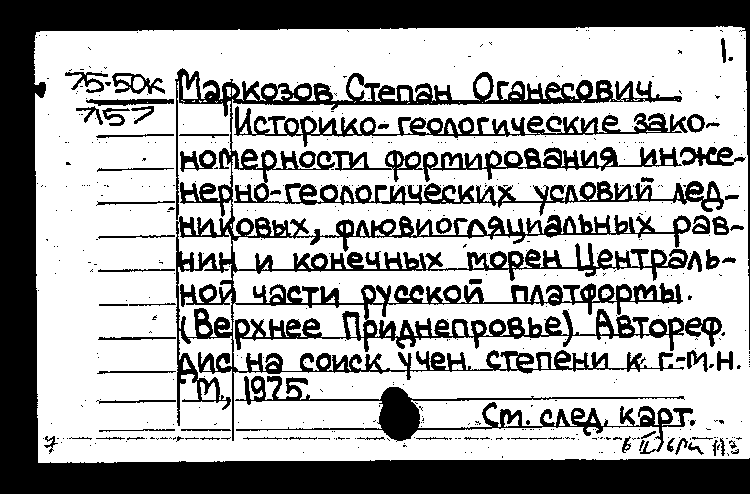 1.
75-50к Маркозов, Степан Оганесович.
7157 Историко-геологические зако-
номерности формирования инже-
нерно-геологических условий лед-
никовых, флювиогляциальных рав-
нин и конечных морен Централь-
ной части русской платформы.
(Верхнее Приднепровье). Автореф.
дис. на соиск. учен. степени к. г.-м.н.
М., 1975.
См. след. карт.